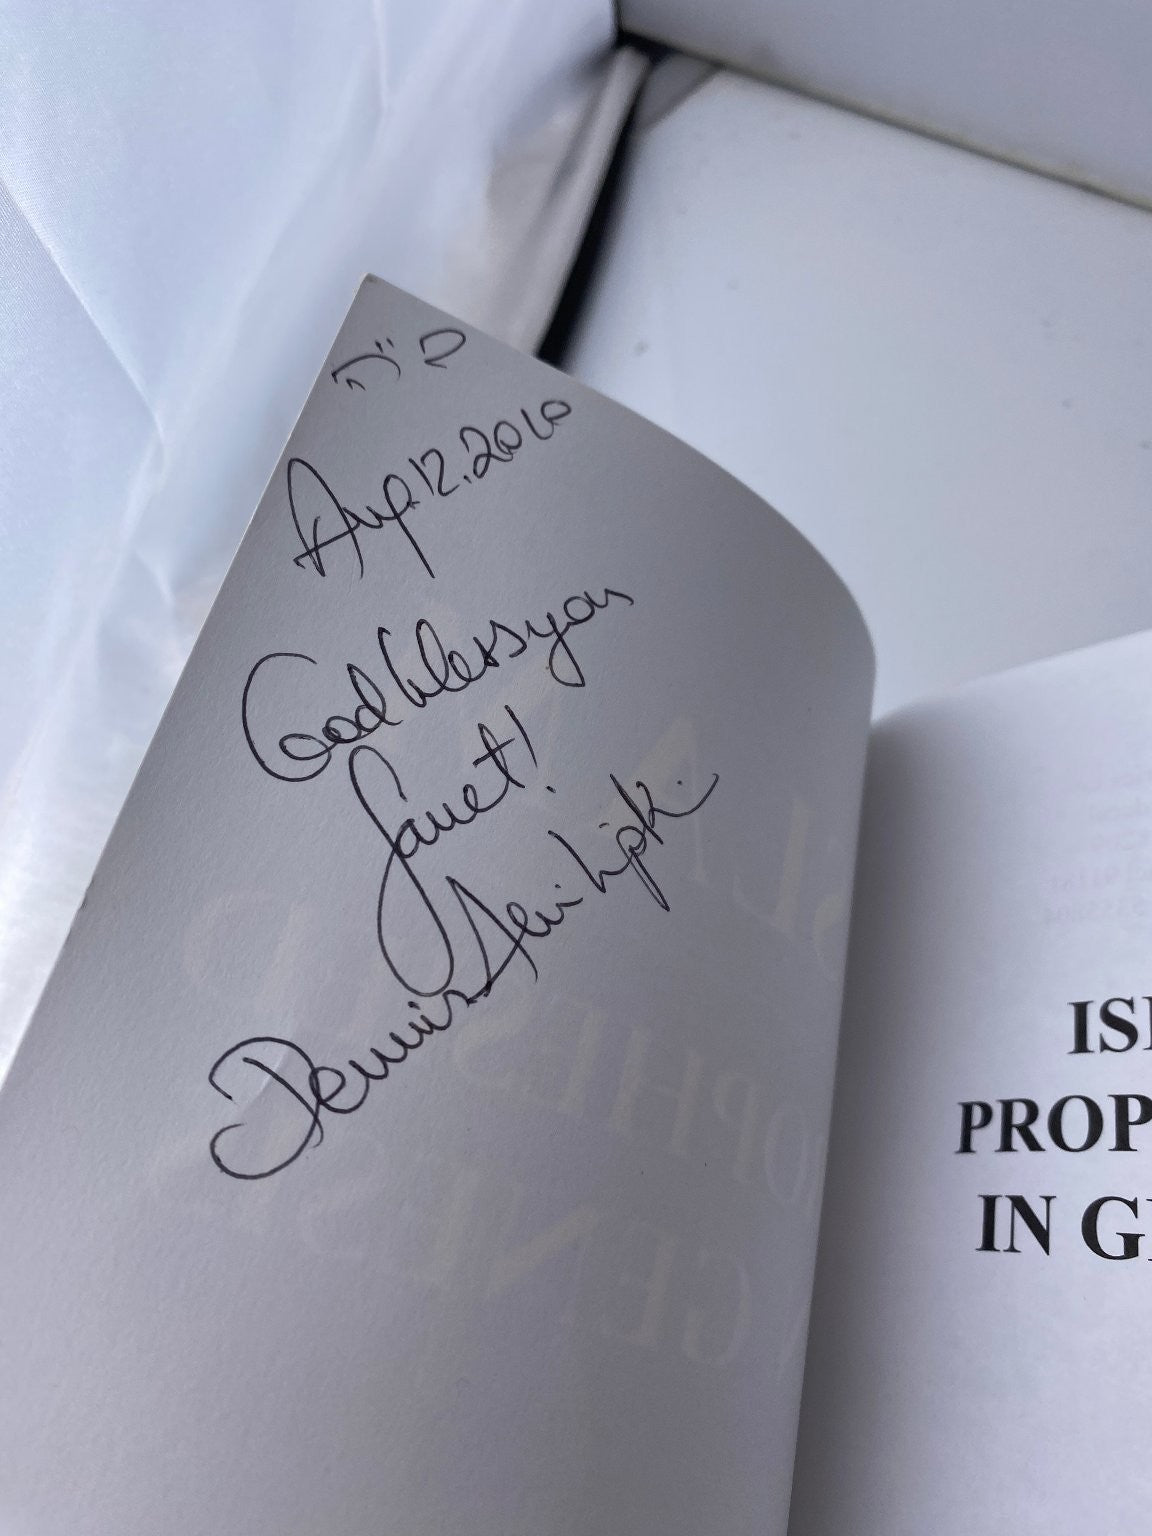 Aug.12.2010
God bless you
Janet!
Dennis Avi Lipk
ISL
PROP
IN GE